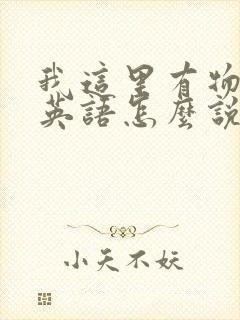 我這里有物
英語怎麼說
小天不妖